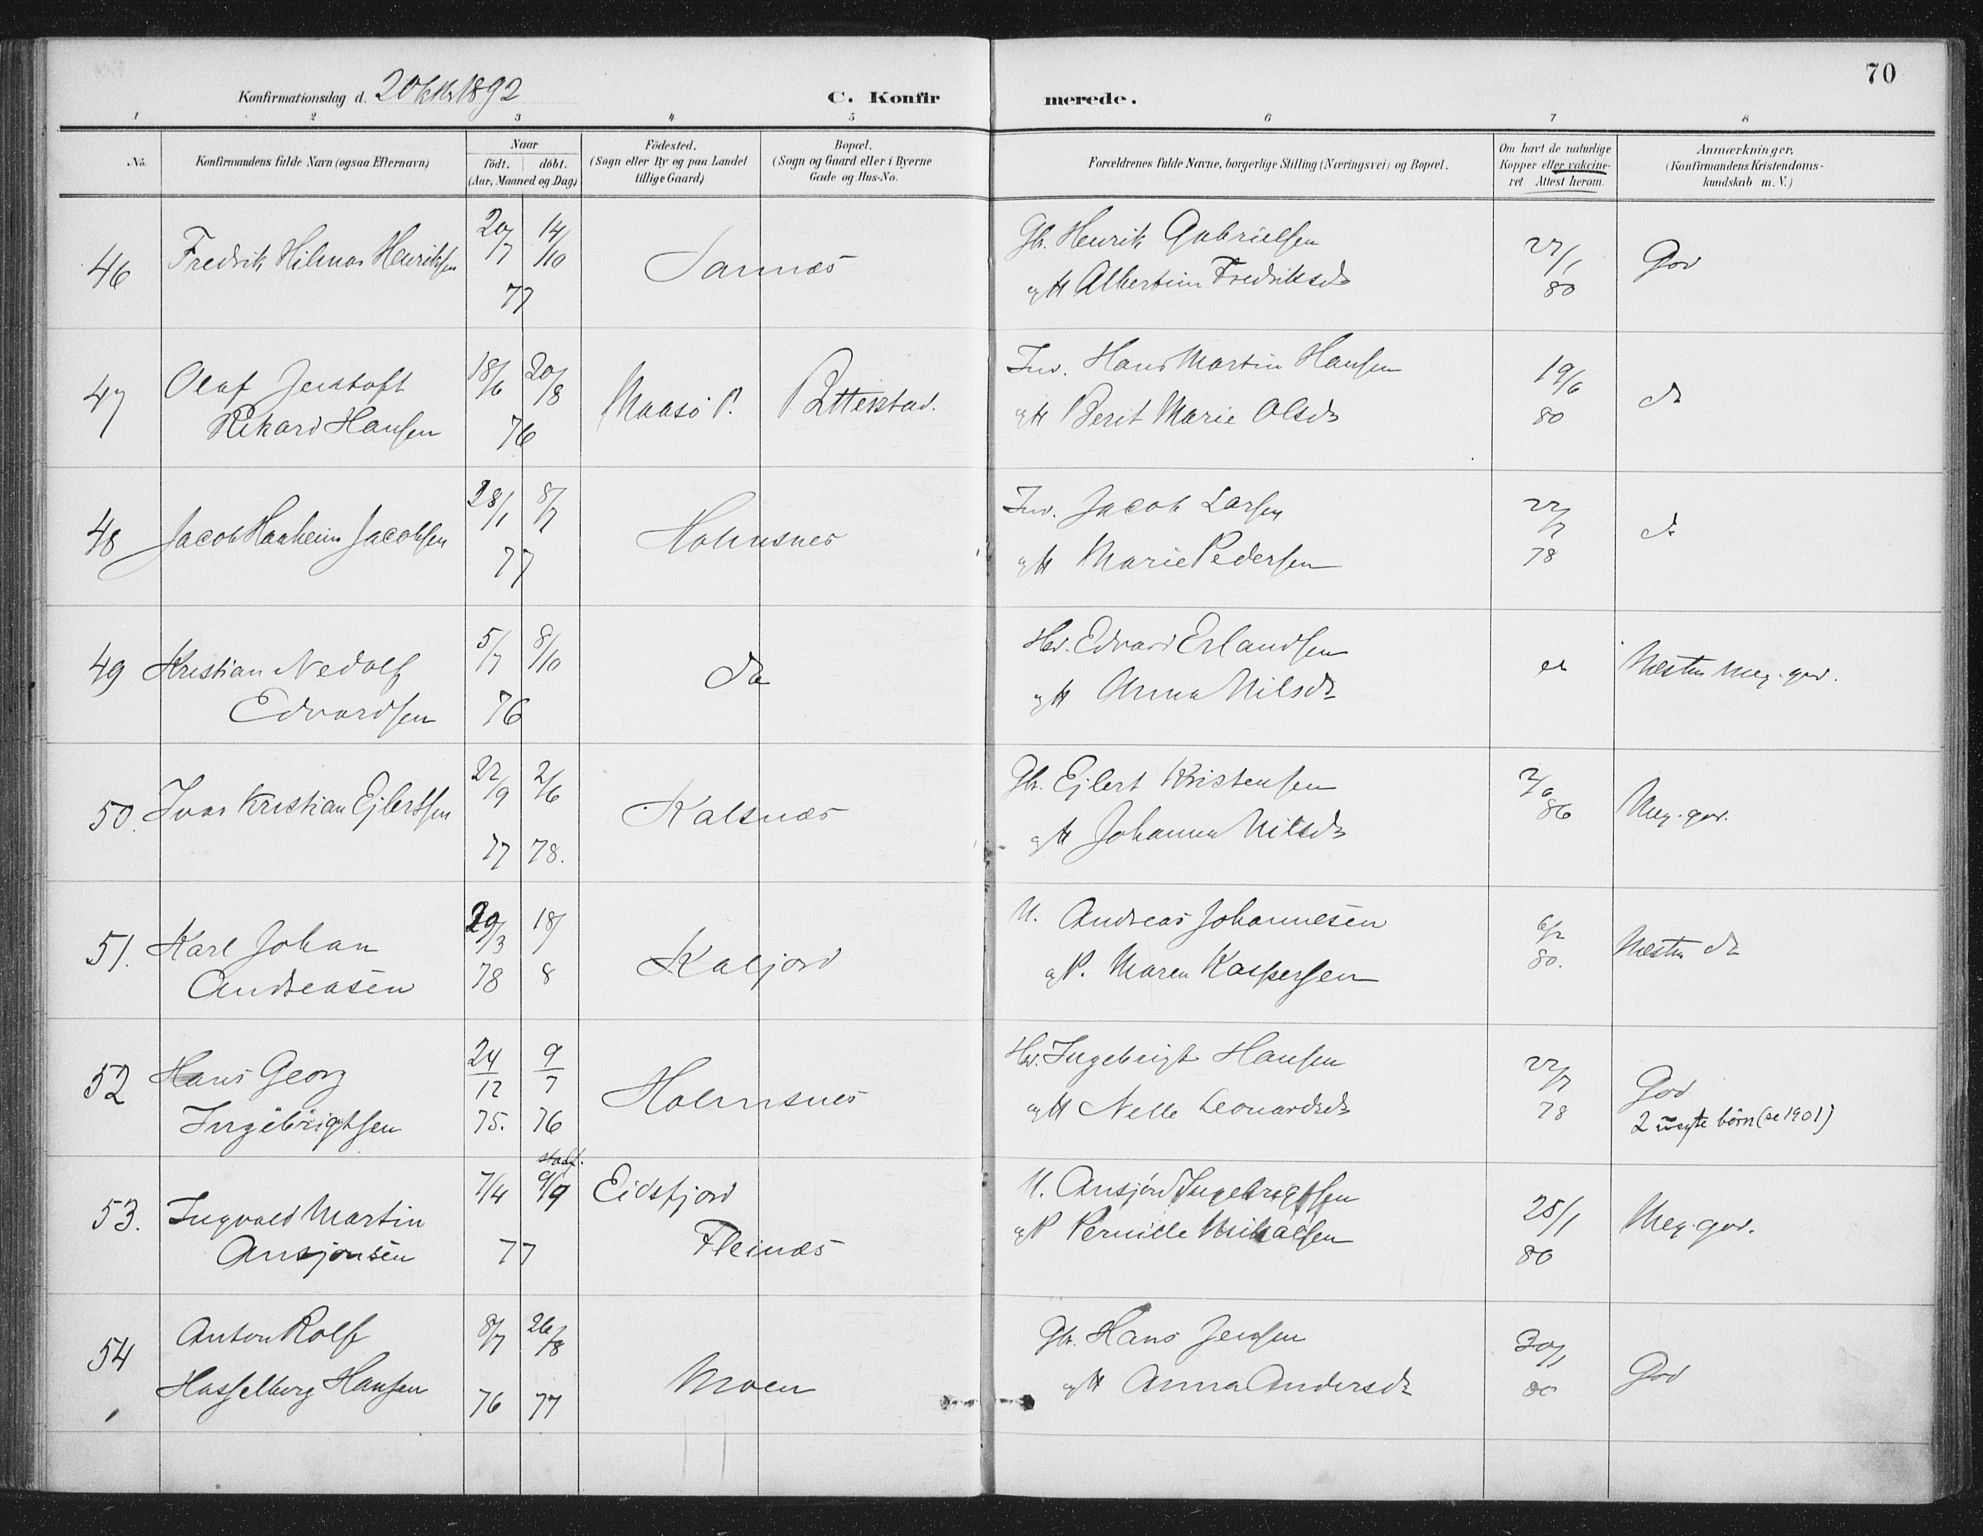 70
Konfirmationsdag d. 2 Oktbr 1892
C. Konfirmerede.
1 2 3 4 5 6 7 8
No.
Konfirmandens fulde Navn (ogsaa Efternavn)
Naar
födt. döbt.
(Aar, Maaned og Dag)
Födested.
(Sogn eller By og paa Landet
tillige Gaard)
Bopæl.
(Sogn og Gaard eller i Byerne
Gade og Hus-No.
Forældrenes fulde Navne, borgerlige Stilling (Næringsvei) og Bopæl.
Om havt de naturlige
Kopper eller vakcine-
ret Attest herom.
Anmærkninger.
(Konfirmandens Kristendoms-
kundskab m. V.)
46 Fredrik Hilmar Henriksen 20/7 14/10 77 Sannæs
Gbr. Henrik Gabrielsen
og H Albertine Fredriksdr
27/1 80 God
47 Olaf Jentoft
Rikard Hansen
18/6 20/8 76 Maasö P.
Inv. Hans Martin Hansen
og H Berit Marie Olsdr
19/6 80 do
48 Jacob Haaheim Jacobsen 28/1 8/7 77 Holmsnes
Inv. Jacob Larsen
og H Marie Pedersen
22/7 78 do
49 Kristian Nedolf
Edvardsen
5/7 8/10 76 do
Hd. Edvard Erlandsen
og H Anna Nilsdr
Næsten meg. god.
50. Ivar Kristian Ejlertsen 22/9 77 2/6 78. Kalsnæs
Gbr. Ejlert Kristensen
og H Johanna Nilsdr
2/6 86 Meg. god.
51. Karl Johan
Andreasen
29/3 78 18/8 Kaljord
U. Andreas Johannesen
og P. Maren Kaspersen
6/2 80. Næsten do
52 Hans Georg
Ingebrigtsen
24/12 75. 9/7 76 Holmsnes
Hd. Ingebrigt Hansen
og H Nelle Leonardsdr
22/7 78 God
2 uegte börn (se 1901)
53. Ingvald Martin
Ansjönsen
7/4 9/9 77 Eidsfjord
Fleinæs
U. Ansjön Ingebrigtsen
og P Pernille Mikalsen
25/1 80 Meg. god.
54 Anton Rolf
Hasselberg Hansen
8/7 76 26/8 77 Moen
Gbr. Hans Jensen
og H Anna Andersdr
30/1 80 God